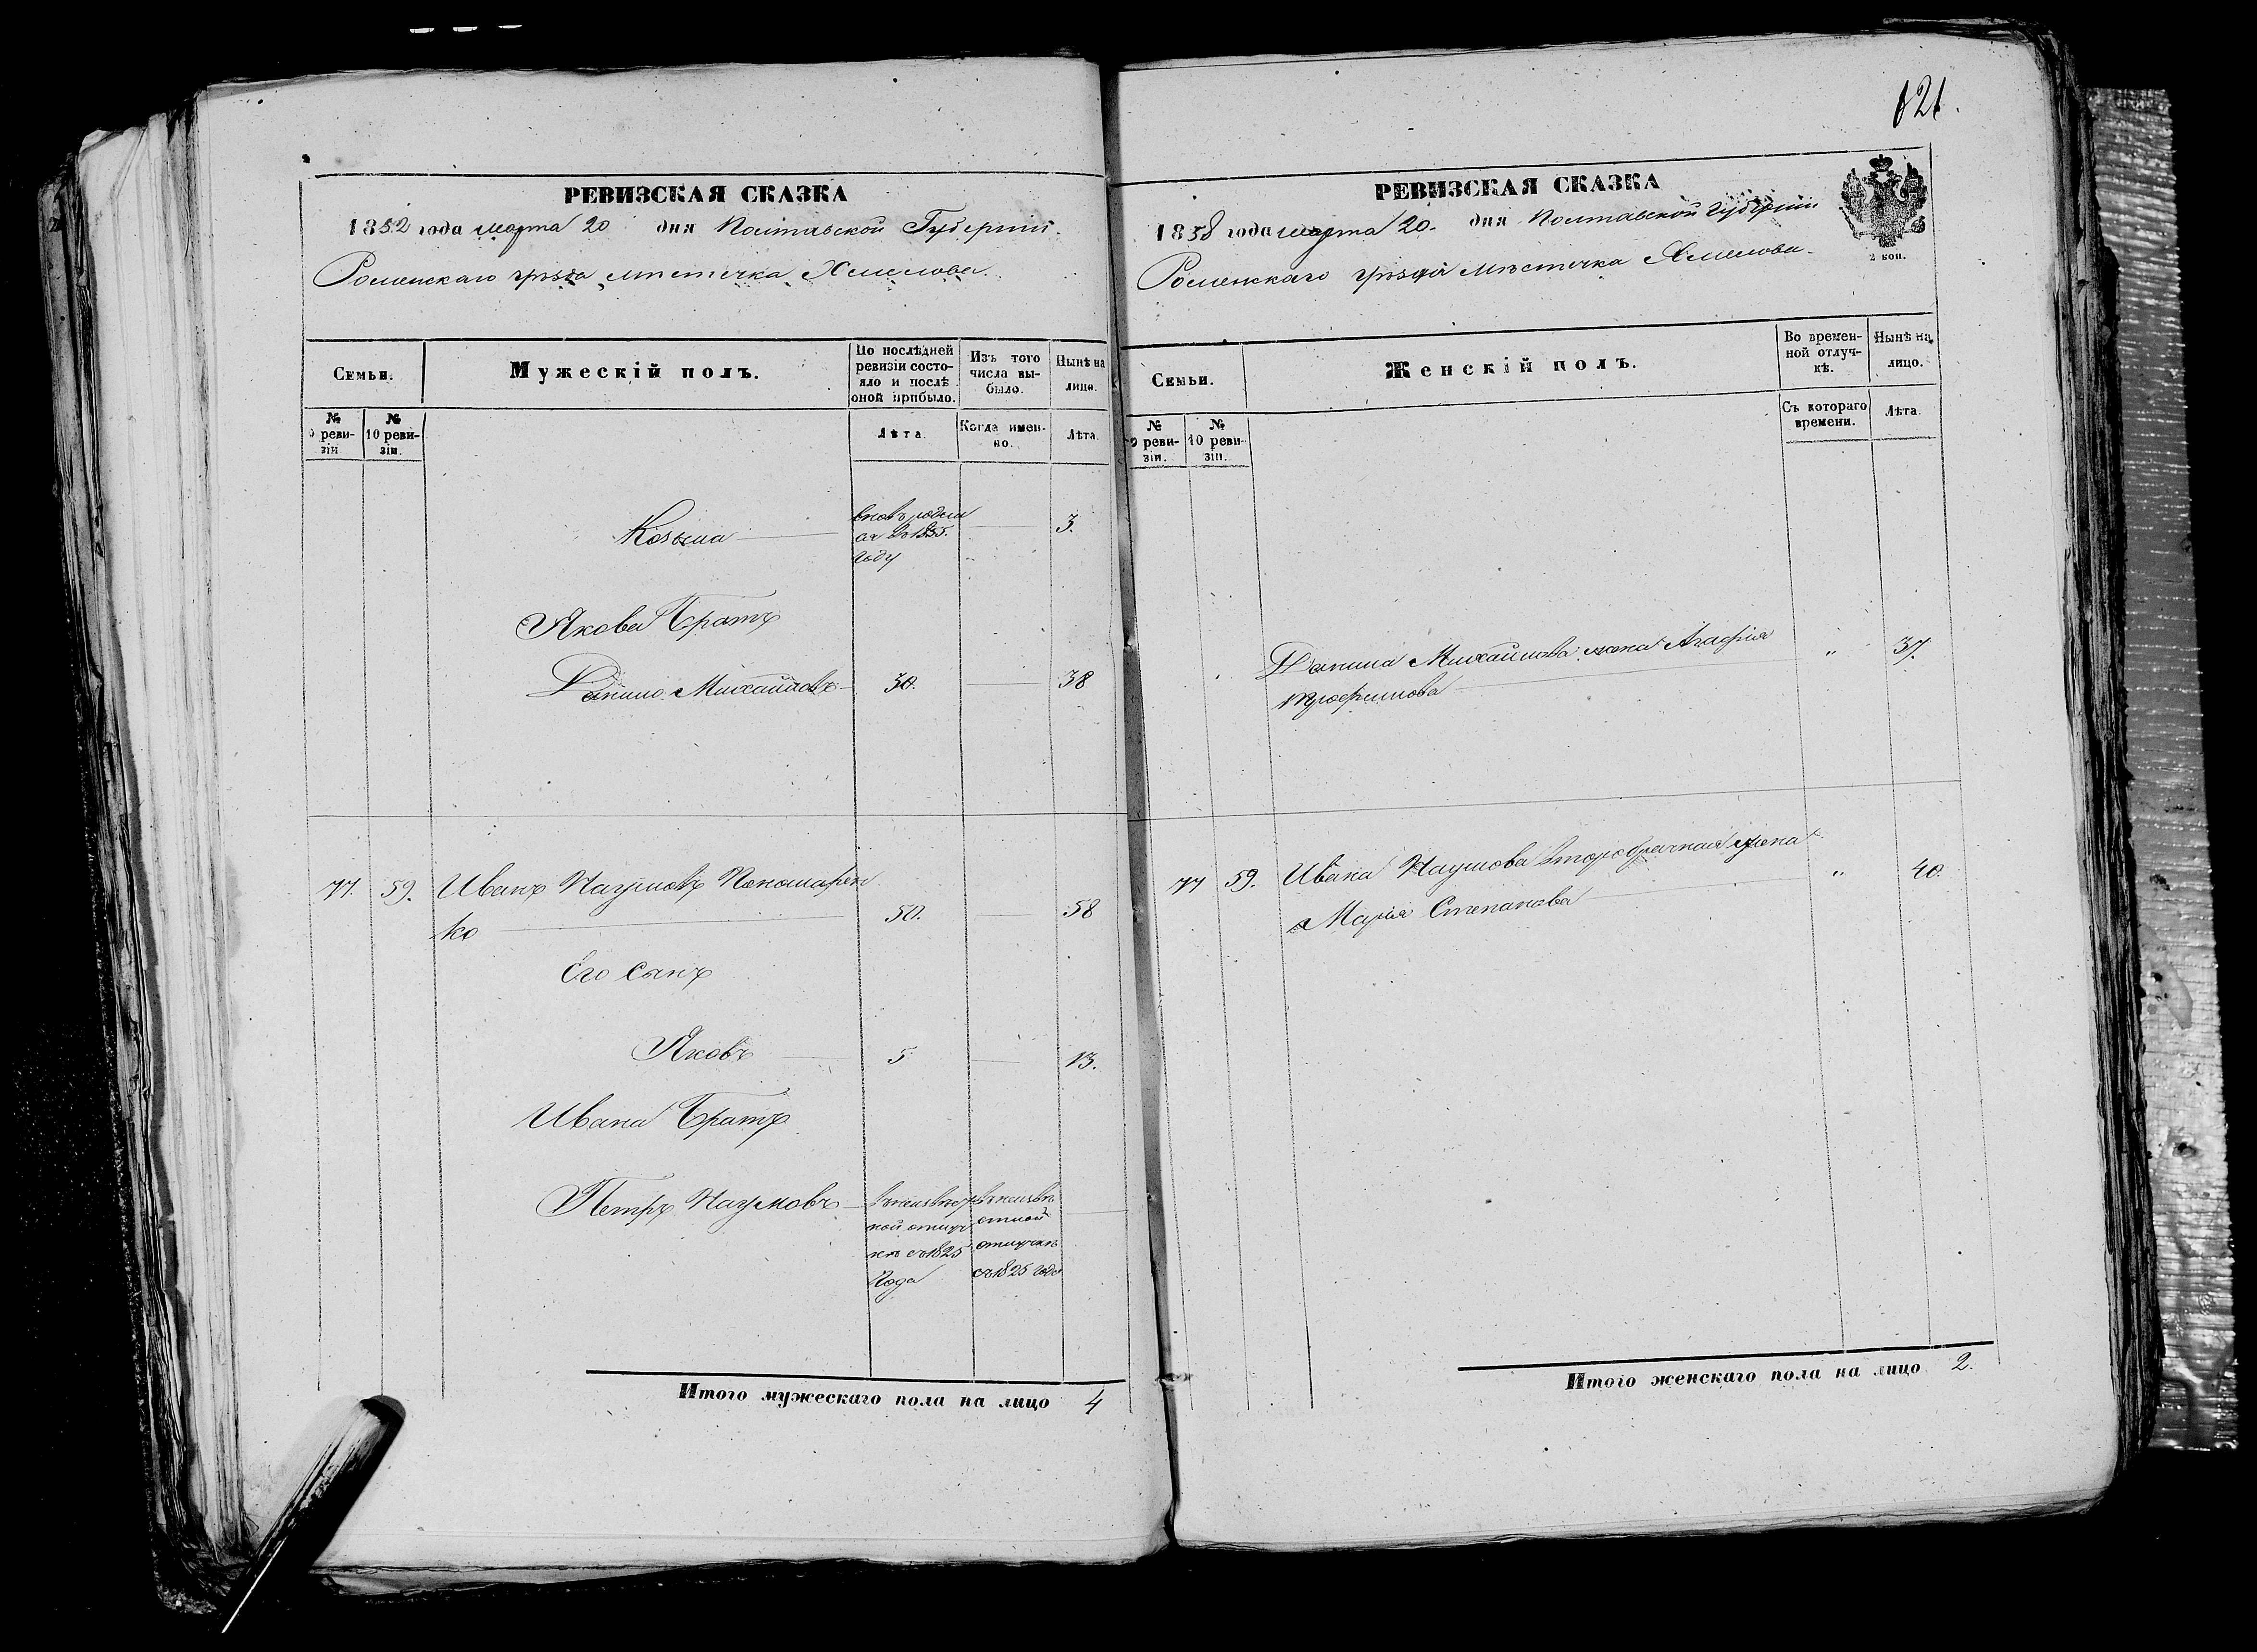 121.
РЕВИЗСКАЯ СКАЗКА
1852 года марта 20 дня Полтавской Губерніи.
Роменскаго уѣзда мѣстечка Хмелова.
Семьи.
Мужескій полъ.
По послѣдней
ревизіи состо-
яло и послѣ
оной прибыло.
Изъ того
числа вы-
было.
Нынѣ на
лицо.
№
9 реви-
зіи.
№
10 реви-
зіи.
Лѣта.
Когда имен-
но.
Лѣта.
Козьма
вновь родил
ся въ 1855.
году
3.
Якова Братъ
Данило Михайловъ 30. 38
77. 59. Иванъ Наумовъ Пономарен
ко 50. 58
Его сынъ
Яковъ 5 13.
Ивана Братъ
Петръ Наумовъ
ной отлуч
кѣ съ 1825
Года
въ неизвѣ
стной
отлучкѣ
съ 1825 года
Итого мужескаго пола на лицо 4
РЕВИЗСКАЯ СКАЗКА
1858 года марта 20. дня Полтавской Губерніи
Роменскаго уѣзда мѣстечка Хмелова.
2 коп.
Семьи.
Женскій полъ.
Во времен-
ной отлуч-
кѣ.
Нынѣ на
лицо.
№
9 реви-
зіи.
№
10 реви-
зіи.
Съ котораго
времени.
Лѣта.
Данила Михайлова жена Агафія " 37.
Трофимова
77 59. Ивана Наумова второбрачная жена
Марія Степанова " 40.
Итого женскаго пола на лицо 2.